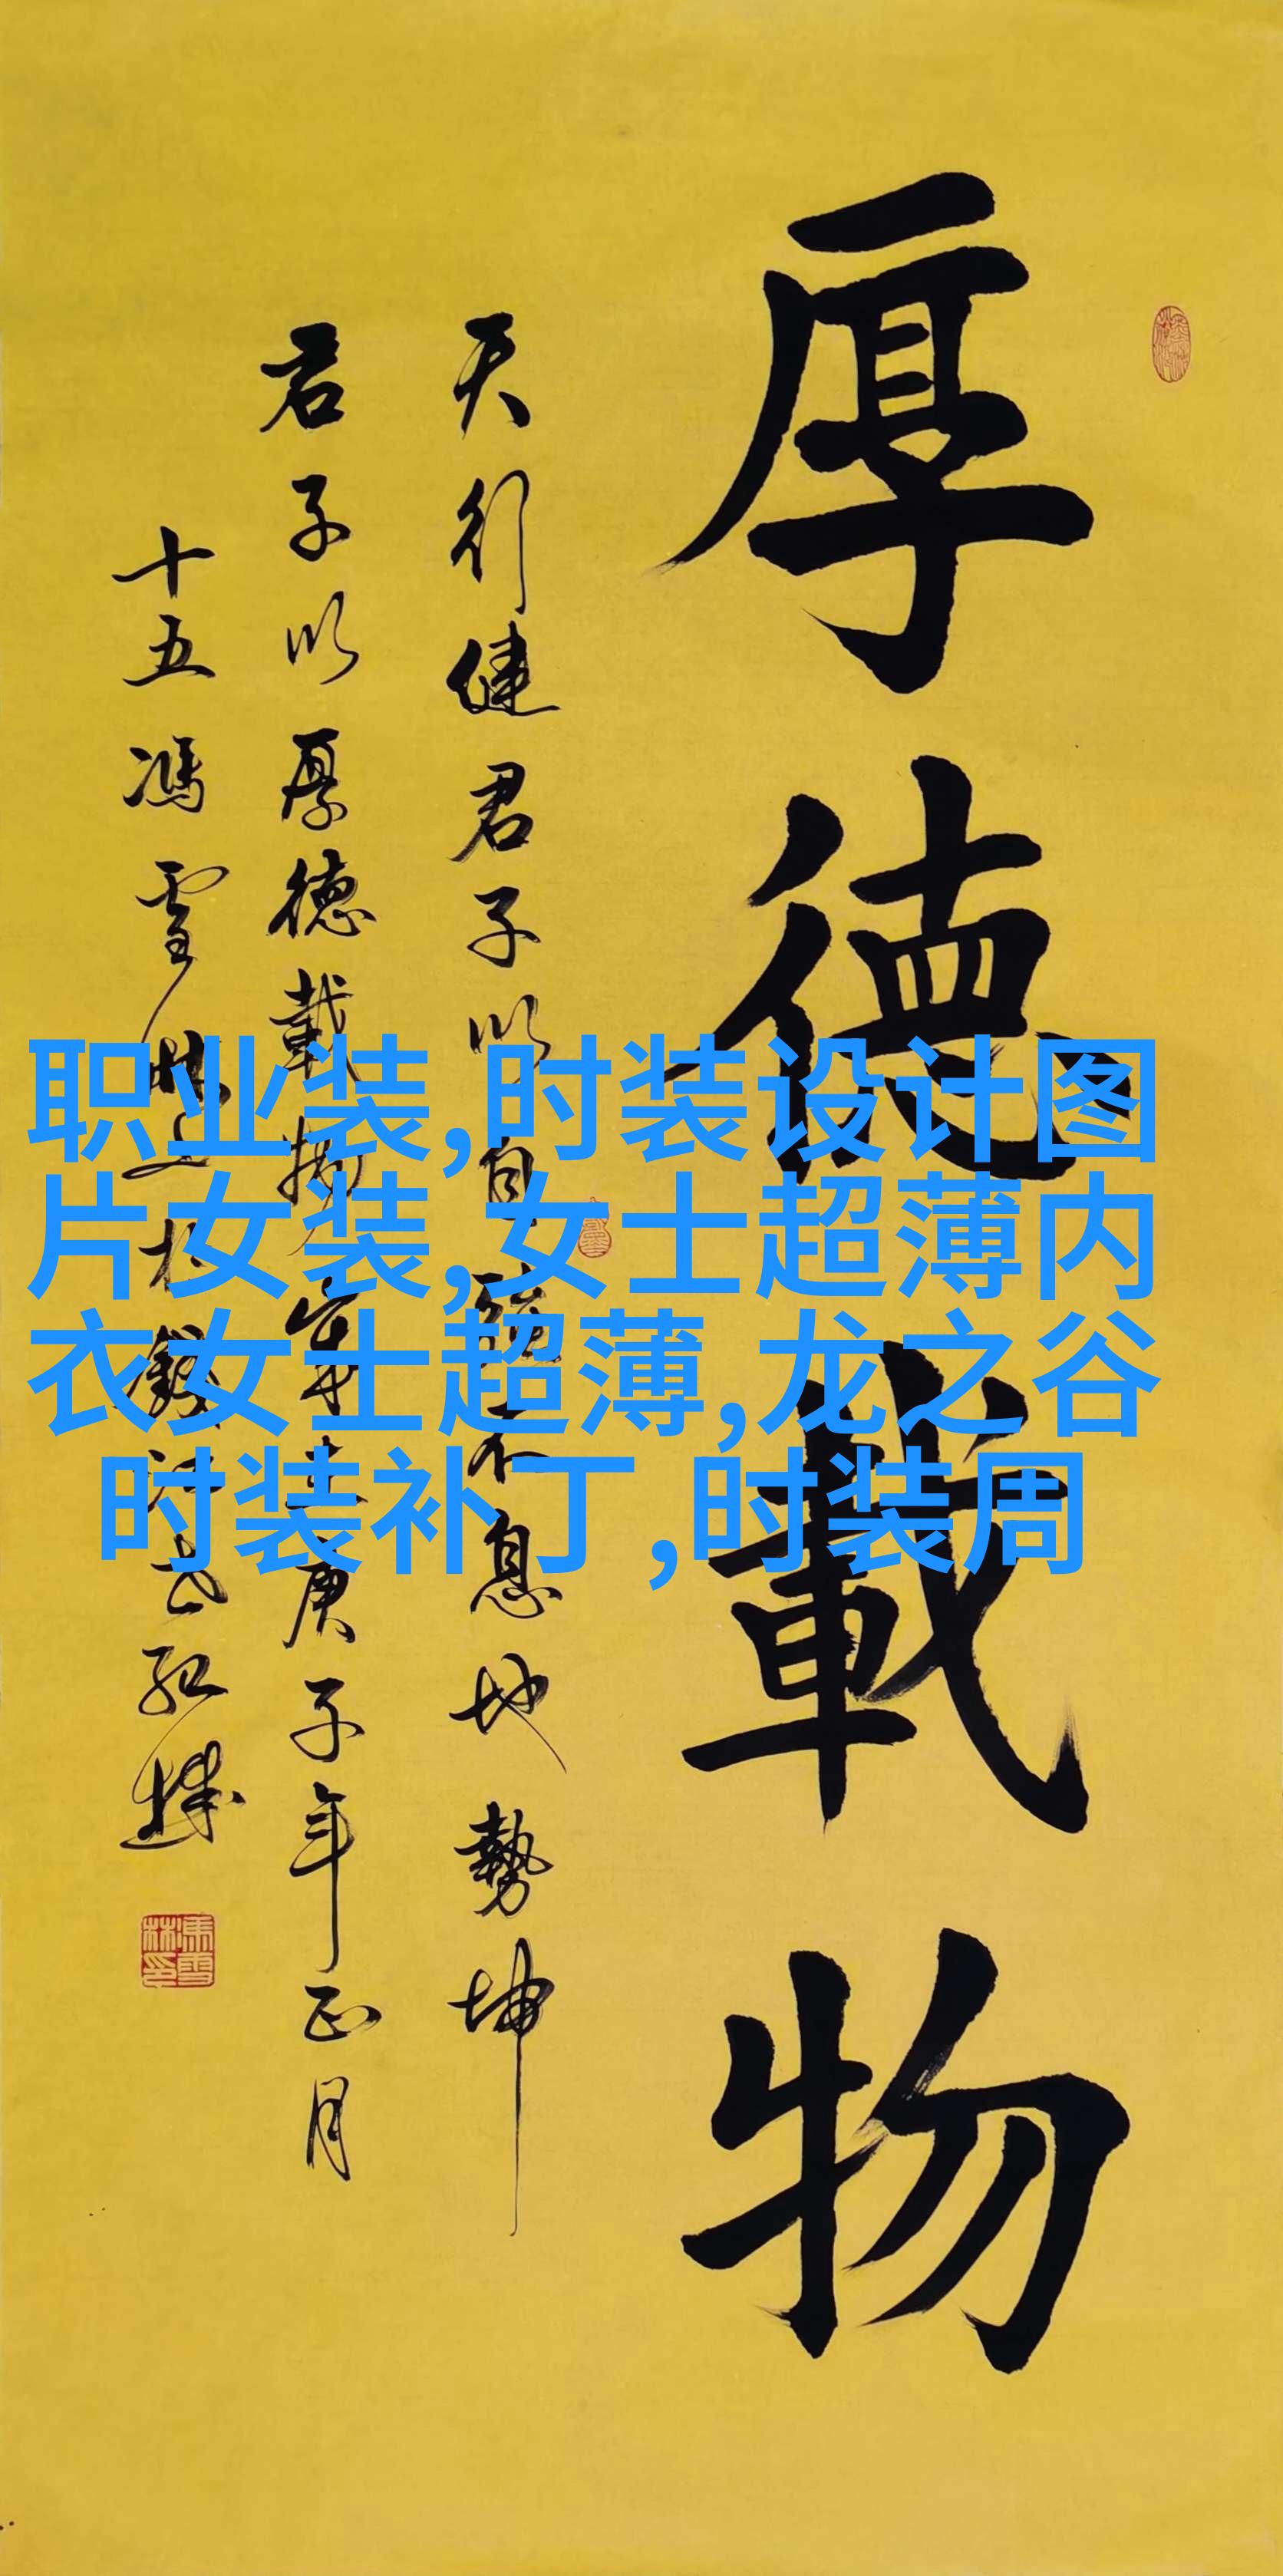 厚德載物
天行健君子以自强不息地勢坤
君子以厚德載物歲在庚子年正月
十五馮雪林
职业装,时装设计图
片女装,女士超薄内
衣女士超薄,龙之谷
时装补丁,时装周
馮雪林印